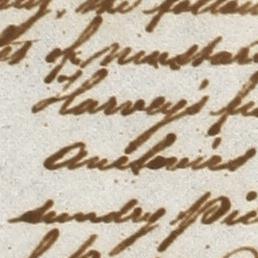 the follow
of mustar
Harvey's
Anchovies
sundry Pic